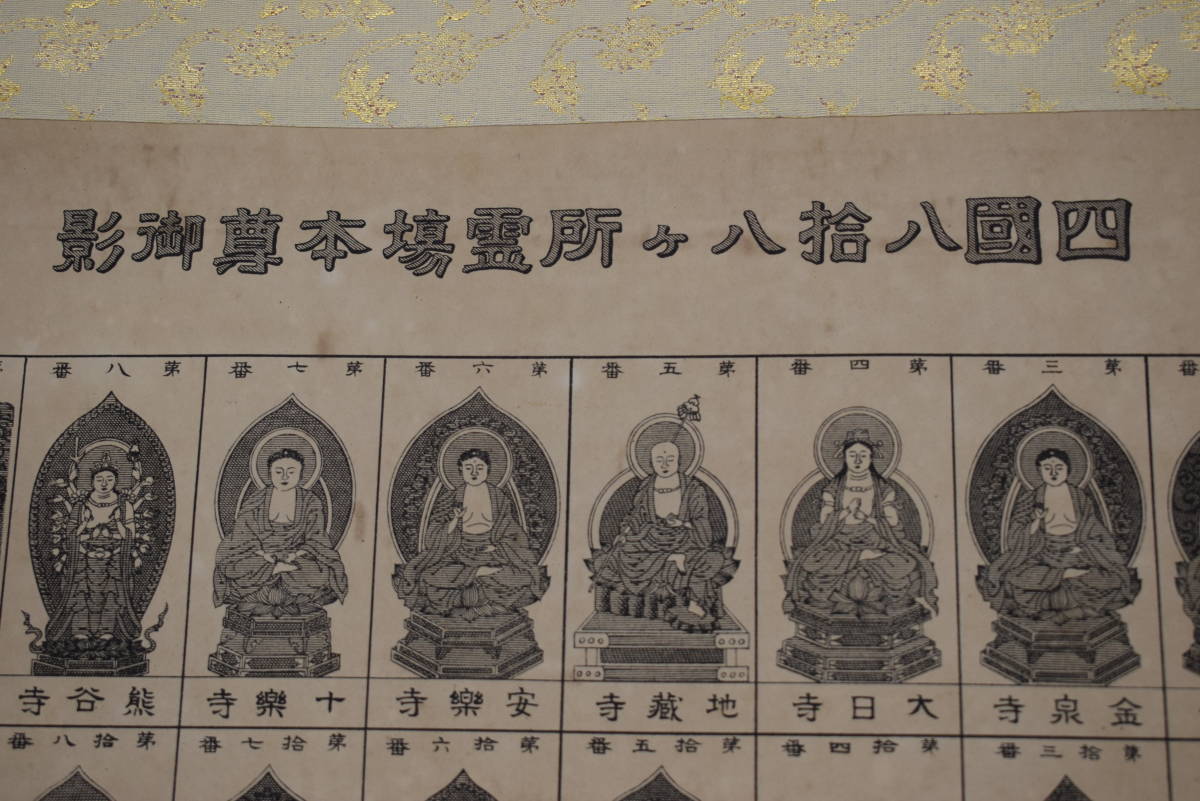 四國八拾八ヶ所霊場本尊御影
第三番
第四番
第五番
第六番
第七番
第八番
金泉寺
大日寺
地藏寺
安樂寺
十樂寺
熊谷寺
第拾三番
第拾四番
第拾五番
第拾六番
第拾七番
第拾八番